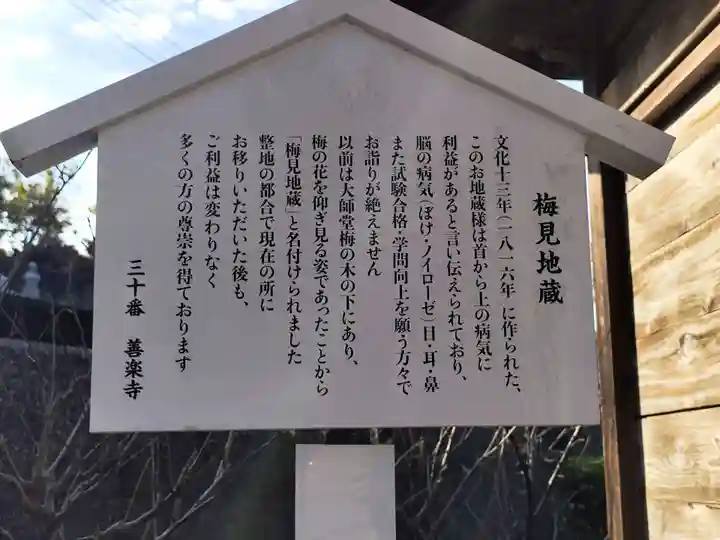 梅見地蔵
文化十三年(一八一六年)に作られた、
このお地蔵様は首から上の病気に
利益があると言い伝えられており、
脳の病気(ぼけ・ノイローゼ)目・耳・鼻
また試験合格・学問向上を願う方々で
お詣りが絶えません
以前は大師堂梅の木の下にあり、
梅の花を仰ぎ見る姿であったことから
「梅見地蔵」と名付けられました
整地の都合で現在の所に
お移りいただいた後も、
ご利益は変わりなく
多くの方の尊崇を得ております
三十番 善楽寺